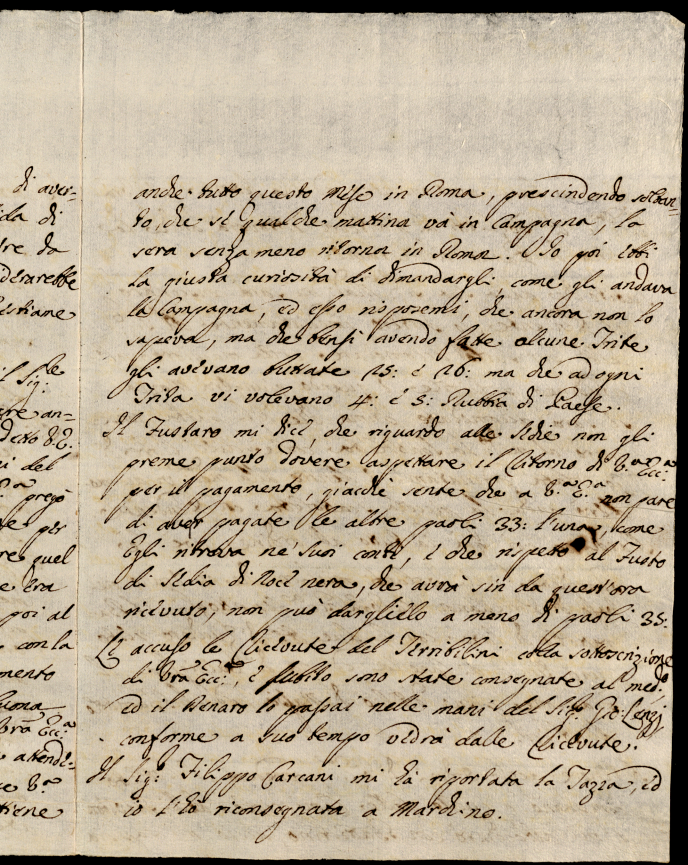 di aver-
da di
dre da
derarebbe
estiane
il Sig:le
re an-
detto V.E.
ni del
pregò
e per
re quel
e Era
poi al
con la
mento
buona
Vra Ecc:a
attende-
ce V.a
tiene
anche tutto questo Mese in Roma, prescindendo soltan-
to, che se qualche mattina và in Campagna, la
sera senza meno ritorna in Roma. Io poi ebbi
la giusta curiosità di dimandargli, come gli andava
la Campagna, ed esso risposemi, che ancora non lo
sapeva, ma che bensì avendo fatte alcune Trite
gli avevano buttate 25: è 26: ma che ad ogni
Trita vi volevano 4: è 5: Rubbia di Paese.
Il Fustaro mi dice, che riguardo alle Sedie non gli
preme punto dovere aspettare il Ritorno di V.a Ecc:a
per il pagamento, giacchè sente che a V.a E.a non pare
di aver pagate le altre paoli 33: l'una, come
Egli ritrova ne' suoi conti, è che rispetto al Fusto
di Sedia di Noce nera, che avrà sin da quest'ora
ricevuto, non può dargliello a meno di paoli 35:
Le accuso le Ricevute del Terribilini colla sottoscrizione
di Vra Ecc:a, è subito sono state consegnate al med:o,
ed il Denaro lo passai nelle mani del Sig:r Gio: Lenzj
conforme a suo tempo vedrà dalle Ricevute.
Il Sig:r Filippo Carcani mi hà riportata la Tazza, ed
io l'hò riconsegnata a Marchino.